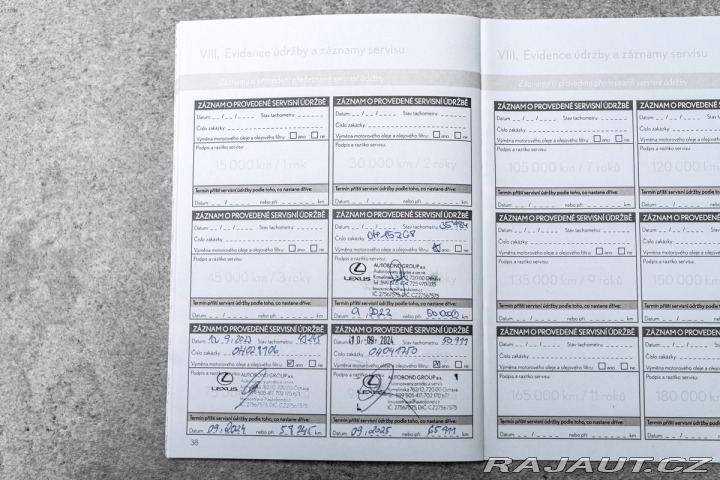 VIII. Evidence údržby a záznamy servisu
Záznamy o provedení předepsané servisní údržby
ZÁZNAM O PROVEDENÉ SERVISNÍ ÚDRŽBĚ
Datum: Stav tachometru: km
Číslo zakázky:
Výměna motorového oleje a olejového filtru: ano ne
Podpis a razítko servisu
15 000 km / 1 rok
Termín příští servisní údržby podle toho, co nastane dříve:
Datum: nebo při: km
ZÁZNAM O PROVEDENÉ SERVISNÍ ÚDRŽBĚ
Datum: Stav tachometru: km
Číslo zakázky:
Výměna motorového oleje a olejového filtru: ano ne
Podpis a razítko servisu
30 000 km / 2 roky
Termín příští servisní údržby podle toho, co nastane dříve:
Datum: nebo při: km
ZÁZNAM O PROVEDENÉ SERVISNÍ ÚDRŽBĚ
Datum: Stav tachometru: km
Číslo zakázky:
Výměna motorového oleje a olejového filtru: ano ne
Podpis a razítko servisu
45 000 km / 3 roky
Termín příští servisní údržby podle toho, co nastane dříve:
Datum: nebo při: km
ZÁZNAM O PROVEDENÉ SERVISNÍ ÚDRŽBĚ
Datum: Stav tachometru:
Číslo zakázky:
Výměna motorového oleje a olejového filtru: ano ne
Podpis a razítko servisu
LEXUS
AUTOBOND GROUP a.s.
Termín příští servisní údržby podle toho, co nastane dříve:
Datum: 9. 2023 nebo při: km
ZÁZNAM O PROVEDENÉ SERVISNÍ ÚDRŽBĚ
Datum: Stav tachometru: 43245
Číslo zakázky:
Výměna motorového oleje a olejového filtru: ano ne
Podpis a razítko servisu
LEXUS
AUTOBOND GROUP a.s.
Termín příští servisní údržby podle toho, co nastane dříve:
Datum: 09. 2024 nebo při: 58 245 km
ZÁZNAM O PROVEDENÉ SERVISNÍ ÚDRŽBĚ
Datum: -09- 2024 Stav tachometru: 50 911
Číslo zakázky: 04041750
Výměna motorového oleje a olejového filtru: ano ne
Podpis a razítko servisu
LEXUS
AUTOBOND GROUP a.s.
Termín příští servisní údržby podle toho, co nastane dříve:
Datum: 09. 2025 nebo při: 65 911 km
38
VIII. Evidence údržby a záznamy servisu
Záznamy o provedení předepsané servisní údržby
ZÁZNAM O PROVEDENÉ SERVISNÍ ÚDRŽBĚ
Datum: Stav tachometru: km
Číslo zakázky:
Výměna motorového oleje a olejového filtru: ano ne
Podpis a razítko servisu
105 000 km / 7 roků
Termín příští servisní údržby podle toho, co nastane dříve:
Datum: nebo při: km
ZÁZNAM O
Datum:
Číslo zakázky:
Výměna motorového
Podpis a razítko servisu
120 000
Termín příští servisní
Datum:
ZÁZNAM O PROVEDENÉ SERVISNÍ ÚDRŽBĚ
Datum: Stav tachometru: km
Číslo zakázky:
Výměna motorového oleje a olejového filtru: ano ne
Podpis a razítko servisu
135 000 km / 9 roků
Termín příští servisní údržby podle toho, co nastane dříve:
Datum: nebo při: km
ZÁZNAM O
Datum:
Číslo zakázky:
Výměna motorového
Podpis a razítko servisu
150 000
Termín příští servisní
Datum:
ZÁZNAM O PROVEDENÉ SERVISNÍ ÚDRŽBĚ
Datum: Stav tachometru: km
Číslo zakázky:
Výměna motorového oleje a olejového filtru: ano ne
Podpis a razítko servisu
165 000 km / 11 roků
Termín příští servisní údržby podle toho, co nastane dříve:
Datum: nebo při: km
ZÁZNAM O
Datum:
Číslo zakázky:
Výměna motorového
Podpis a razítko servisu
180 000
Termín příští servisní
RAJAUT.CZ